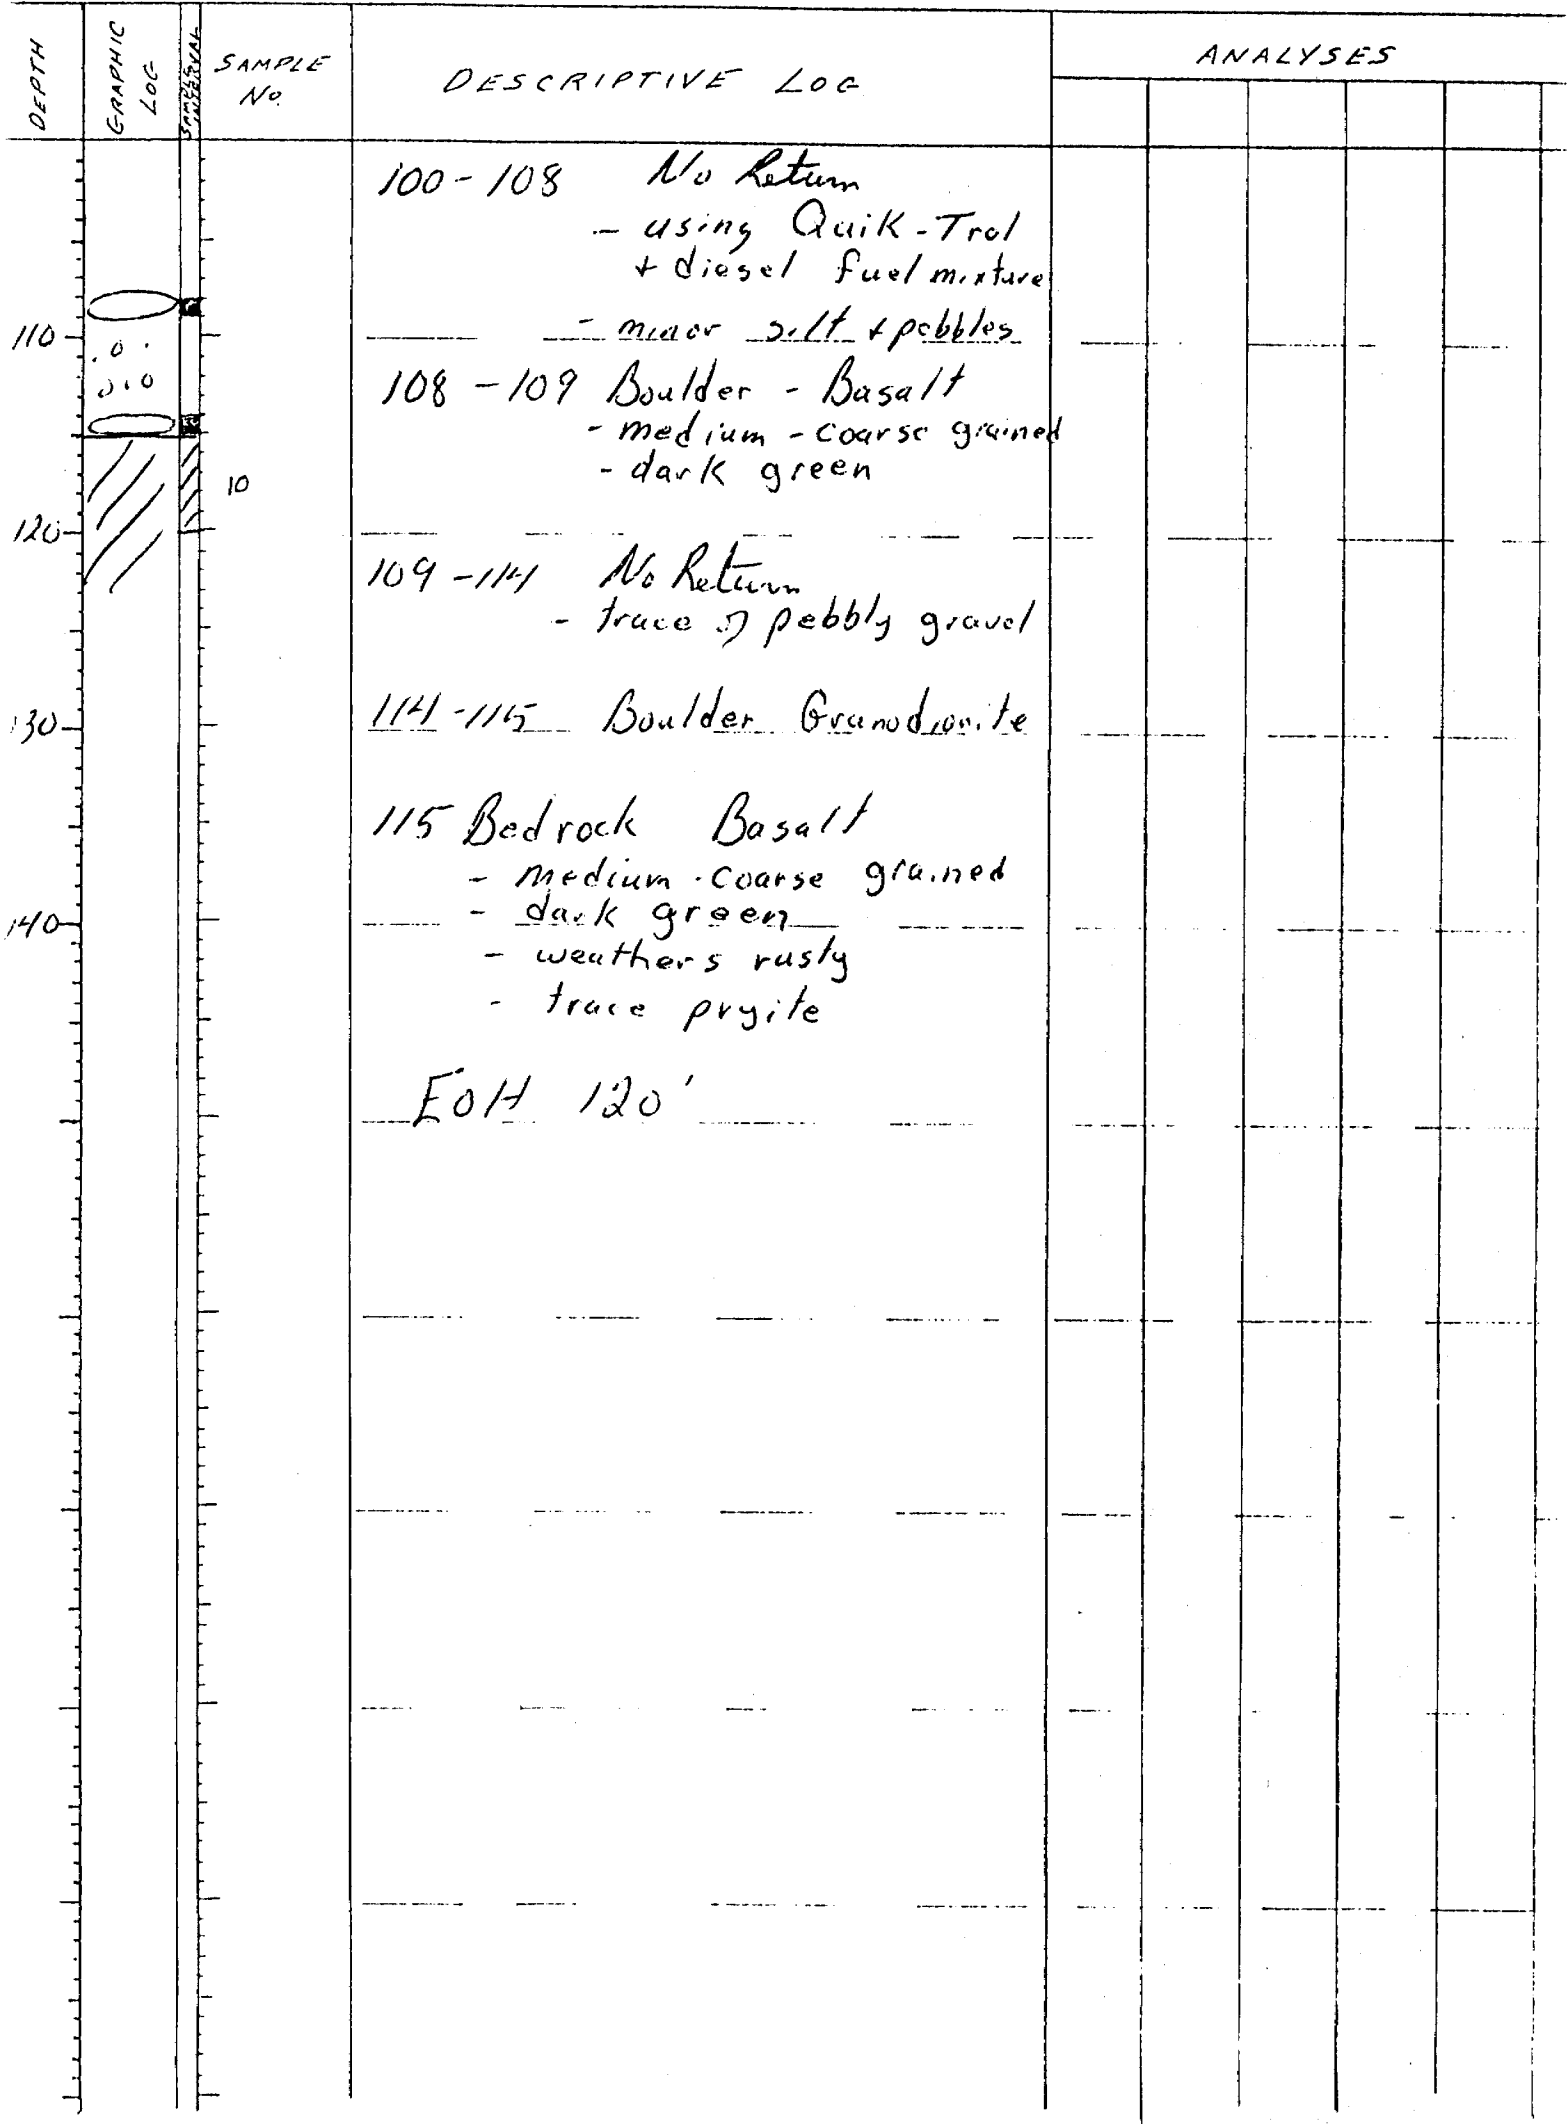 DEPTH
GRAPHIC LOG
SAMPLE INTERVAL
SAMPLE No.
DESCRIPTIVE LOG
ANALYSES
100-108 No Return
- using Quik-Trol
+ diesel fuel mixture
- minor silt + pebbles
110
108-109 Boulder - Basalt
- medium - coarse grained
- dark green
10
120
109-114 No Return
- trace of pebbly gravel
130
114-115 Boulder Granodiorite
115 Bedrock Basalt
- medium-coarse grained
- dark green
140
- weathers rusty
- trace pryite
EOH 120'